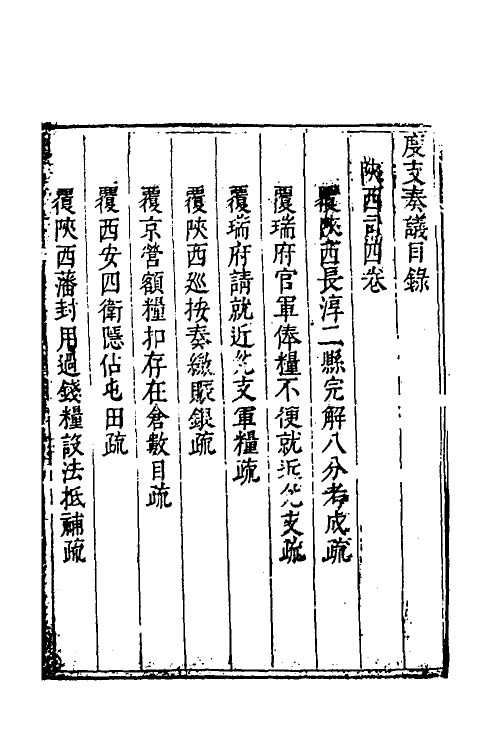 度支奏議目錄
陝西司四卷
覆陝西長淳二縣完解八分考成疏
覆瑞府官軍俸糧不便就近兌支疏
覆瑞府請就近兌支軍糧疏
覆陝西巡按奏繳賑銀疏
覆京營額糧扣存在倉數目疏
覆西安四衛隱佔屯田疏
覆陝西藩封用過錢糧設法抵補疏